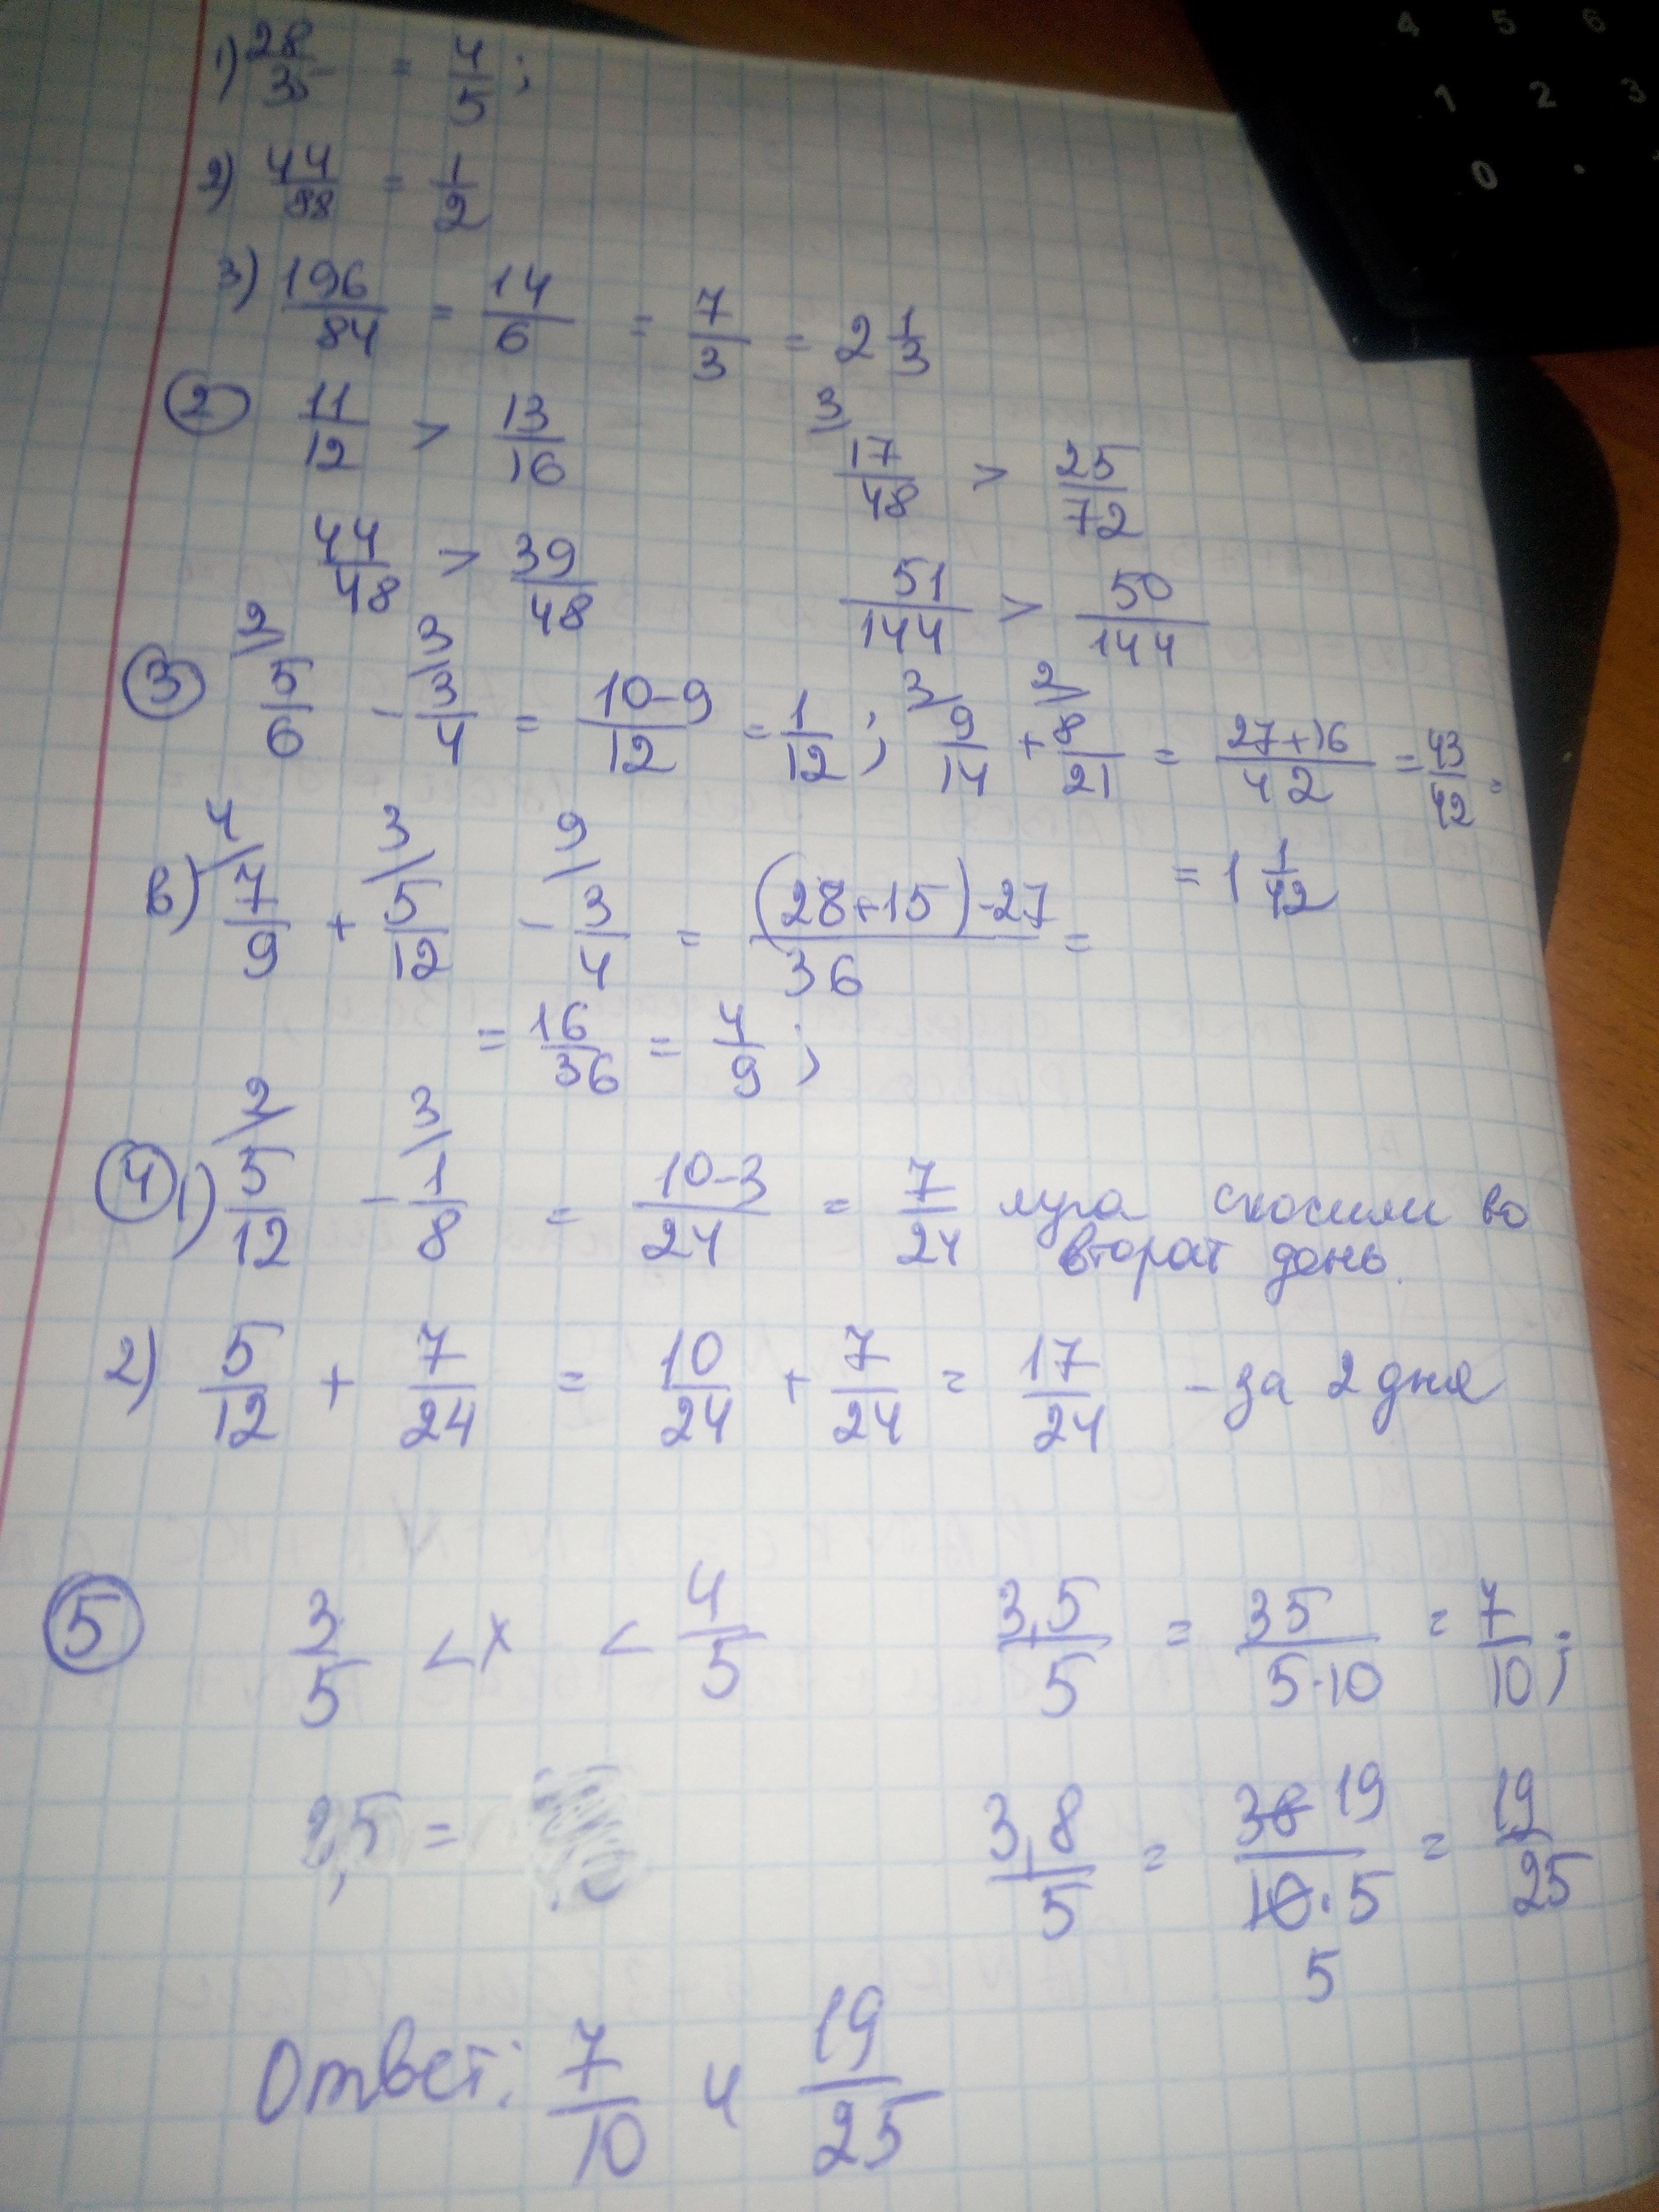 4 5 6
1 2 3
0 .
1) 28/35 = 4/5;
2) 44/88 = 1/2
3) 196/84 = 14/6 = 7/3 = 2 1/3
② 11/12 > 13/16 3/ 17/48 > 25/72
44/48 > 39/48 51/144 > 50/144
③ 2/ 5/6 - 3/ 3/4 = 10-9/12 = 1/12; 3/ 9/14 + 2/ 8/21 = 27+16/42 = 43/42 =
= 1 1/42
в) 4/ 7/9 + 3/ 5/12 - 9/ 3/4 = (28+15)-27/36 =
= 16/36 = 4/9;
④ 1) 2/ 5/12 - 3/ 1/8 = 10-3/24 = 7/24 луга скосили во
второй день.
2) 5/12 + 7/24 = 10/24 + 7/24 = 17/24 - за 2 дня
⑤ 3/5 < x < 4/5 3,5/5 = 35/5·10 = 7/10;
3,8/5 = 38 19/10·5 5 = 19/25
Ответ: 7/10 и 19/25